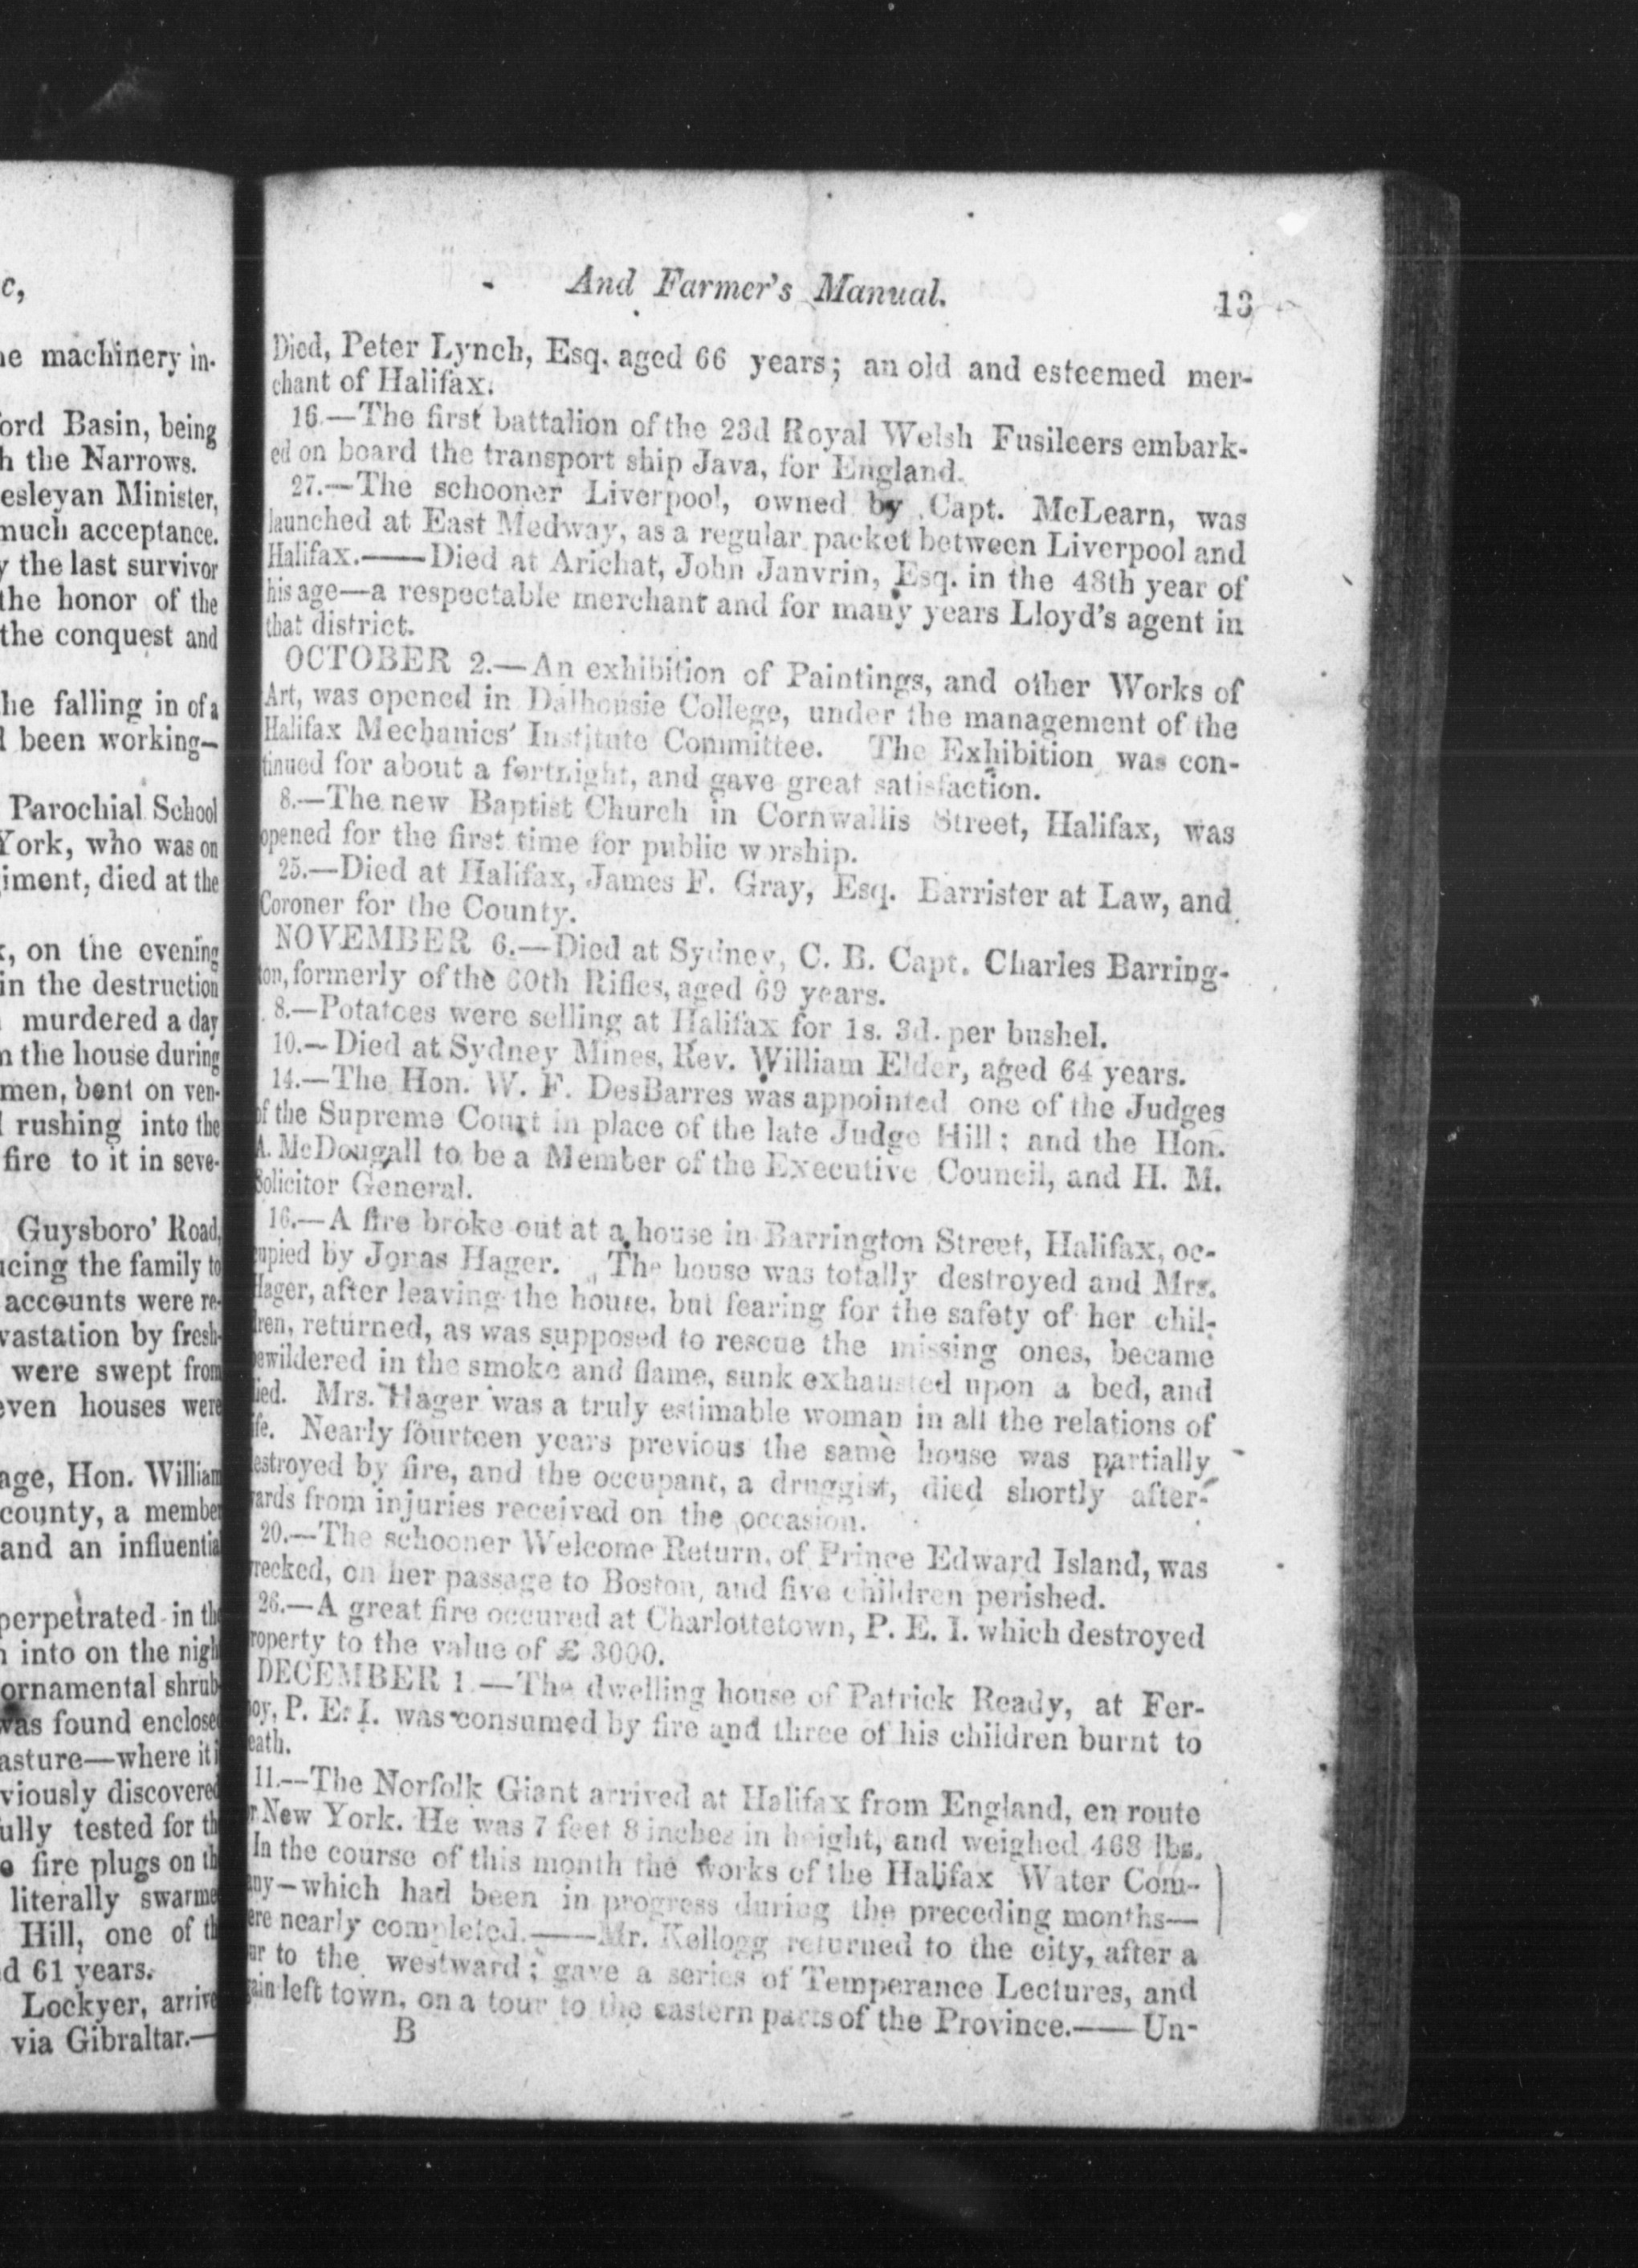 c,
ne machinery in-
ford Basin, being
h the Narrows.
esleyan Minister,
much acceptance.
y the last survivor
the honor of the
the conquest and
he falling in of a
l been working—
Parochial School
York, who was on
giment, died at the
k, on the evening
in the destruction
murdered a day
n the house during
men, bent on ven-
l rushing into the
fire to it in seve-
Guysboro' Road,
ucing the family to
accounts were re-
vastation by fresh-
were swept from
even houses were
age, Hon. William
county, a member
and an influential
perpetrated in th
n into on the nigh
ornamental shrub
was found enclose
asture—where it i
viously discovered
fully tested for th
e fire plugs on th
literally swarme
Hill, one of th
d 61 years.
Lockyer, arrive
via Gibraltar.—
And Farmer's Manual. 13
Died, Peter Lynch, Esq. aged 66 years; an old and esteemed mer-
chant of Halifax.
16.—The first battalion of the 23d Royal Welsh Fusileers embark-
ed on board the transport ship Java, for England.
27.—The schooner Liverpool, owned by Capt. McLearn, was
launched at East Medway, as a regular packet between Liverpool and
Halifax.——Died at Arichat, John Janvrin, Esq. in the 48th year of
his age—a respectable merchant and for many years Lloyd's agent in
that district.
OCTOBER 2.—An exhibition of Paintings, and other Works of
Art, was opened in Dalhousie College, under the management of the
Halifax Mechanics' Institute Committee. The Exhibition was con-
tinued for about a fortnight, and gave great satisfaction.
8.—The new Baptist Church in Cornwallis Street, Halifax, was
opened for the first time for public worship.
25.—Died at Halifax, James F. Gray, Esq. Barrister at Law, and
Coroner for the County.
NOVEMBER 6.—Died at Sydney, C. B. Capt. Charles Barring-
ton, formerly of the 60th Rifles, aged 69 years.
8.—Potatoes were selling at Halifax for 1s. 3d. per bushel.
10.—Died at Sydney Mines, Rev. William Elder, aged 64 years.
14.—The Hon. W. F. DesBarres was appointed one of the Judges
of the Supreme Court in place of the late Judge Hill; and the Hon.
A. McDougall to be a Member of the Executive Council, and H. M.
Solicitor General.
16.—A fire broke out at a house in Barrington Street, Halifax, oc-
cupied by Jonas Hager. The house was totally destroyed and Mrs.
Hager, after leaving the house, but fearing for the safety of her chil-
dren, returned, as was supposed to rescue the missing ones, became
bewildered in the smoke and flame, sunk exhausted upon a bed, and
died. Mrs. Hager was a truly estimable woman in all the relations of
life. Nearly fourteen years previous the same house was partially
destroyed by fire, and the occupant, a druggist, died shortly after-
wards from injuries received on the occasion.
20.—The schooner Welcome Return, of Prince Edward Island, was
wrecked, on her passage to Boston, and five children perished.
26.—A great fire occured at Charlottetown, P. E. I. which destroyed
property to the value of £ 3000.
DECEMBER 1.—The dwelling house of Patrick Ready, at Fer-
moy, P. E. I. was consumed by fire and three of his children burnt to
death.
11.—The Norfolk Giant arrived at Halifax from England, en route
for New York. He was 7 feet 8 inches in height, and weighed 468 lbs.
In the course of this month the works of the Halifax Water Com-
pany—which had been in progress during the preceding months—
were nearly completed.——Mr. Kellogg returned to the city, after a
tour to the westward; gave a series of Temperance Lectures, and
again left town, on a tour to the eastern parts of the Province.——Un-
B